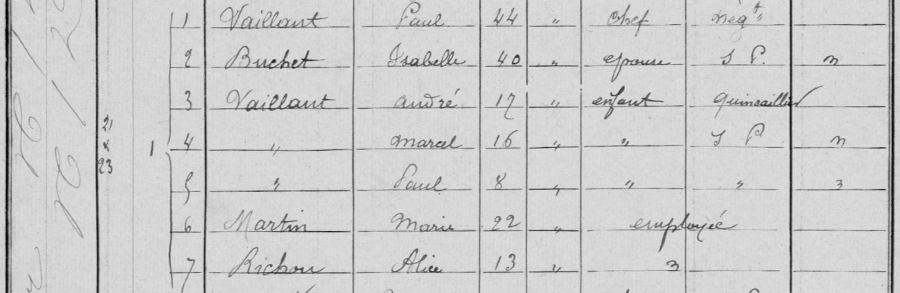 1 Vaillant Paul 44 " chef nég^t "
2 Buchet Isabelle 40 " epouse S P. n
3 Vaillant André 17 " enfant quincaillier
21 & 23 1 4 " Marcel 16 " " S P n
5 " Paul 8 " " " 3
6 Martin Marie 22 " employée
7 Richou Alice 13 " 3